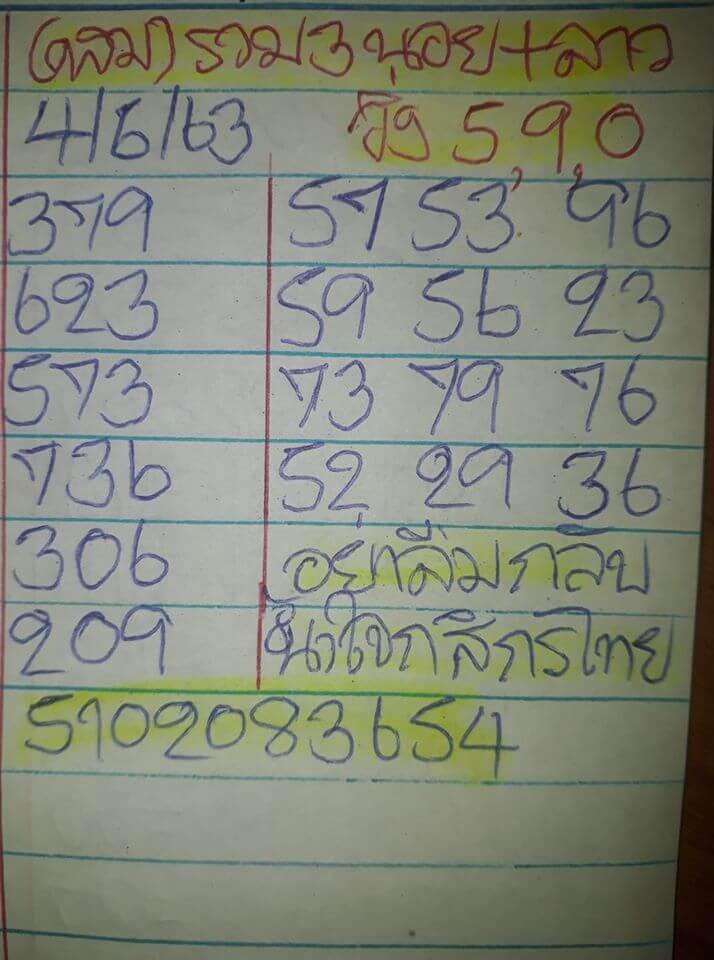 (ผสม) รวม 3 นุอย + ลาว
4/6/63 วิ่ง 5,9,0
379 57 53 96
623 59 56 23
573 73 79 76
736 52 29 36
306 อย่าลืมกลับ
209 น้ำใจกสิกรไทย
5102083654